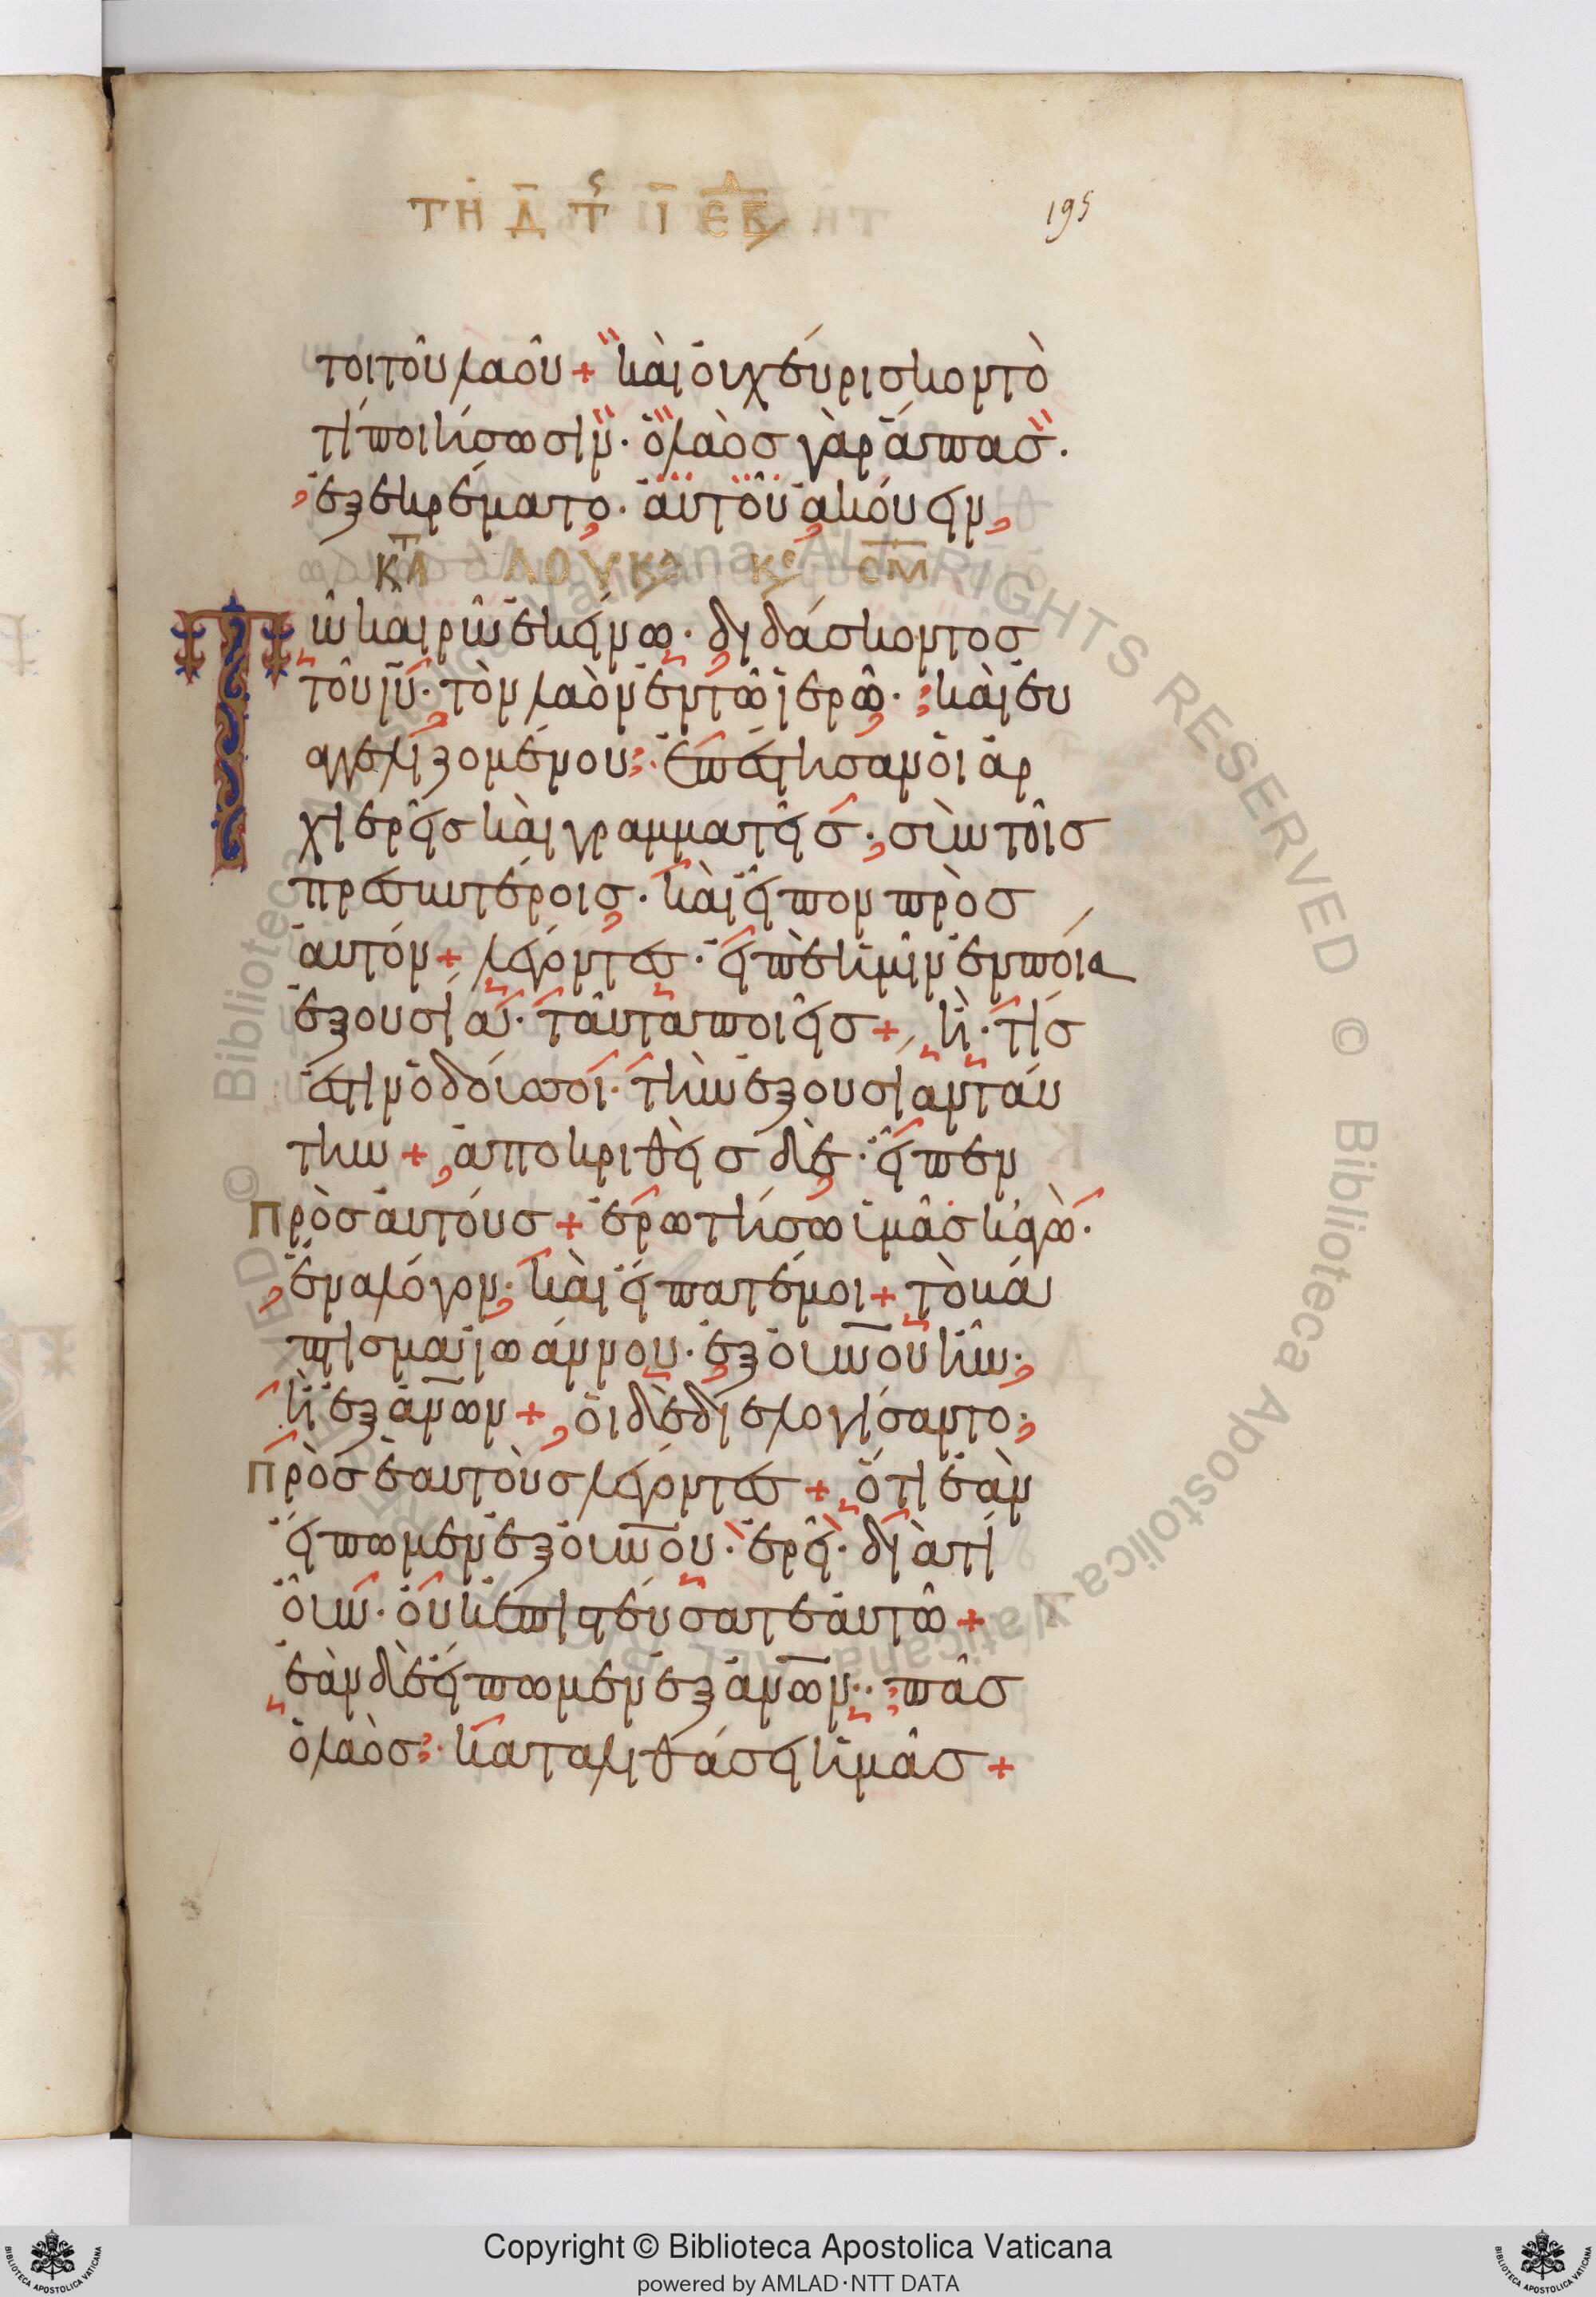 ΤΗ Δ Τ Ι ΕΒΔ
195
τοι τοῦ λαοῦ + καὶ οὐχ εὕρισκον τὸ
τί ποιήσωσιν· ὁ λαὸς γὰρ ἅπας·
ἐξεκρέματο· αὐτοῦ ἀκούειν
ΚΑΤ ΛΟΥΚ ΚΕ ΣΜ
Τῶ καιρῶ ἐκείνω· διδάσκοντος
τοῦ ιυ· τὸν λαὸν ἐν τῶ ἱερῶ· καὶ εὐ
αγγελιζομένου· ἐπέστησαν οἱ ἀρ
χιερεῖς καὶ γραμματεῖς· σὺν τοῖς
πρεσβυτέροις· καὶ εἶπον πρὸς
αὐτόν + λέγοντες· εἰπὲ ἡμῖν ἐν ποία
ἐξουσία· ταῦτα ποιεῖς + ἢ· τίς
ἐστιν ὁ δούς σοι· τὴν ἐξουσίαν ταύ
την + ἀποκριθεὶς δὲ· εἶπεν
πρὸς αὐτούς + ἐρωτήσω ὑμᾶς κἀγὼ·
ἕνα λόγον· καὶ εἴπατέ μοι + τὸ βά
πτισμα ἰωάννου· ἐξ οὐνοῦ ἦν·
ἢ ἐξ ἀνων + οἱ δὲ διελογίσαντο·
πρὸς ἑαυτοὺς λέγοντες + ὅτι ἐὰν
εἴπωμεν ἐξ οὐνου· ἐρεῖ· διατί
οὖν· οὐκ ἐπιστεύσατε αὐτῶ +
ἐὰν δὲ εἴπωμεν ἐξ ἀνων· πᾶς
ὁ λαὸς· καταλιθάσει ἡμᾶς +
© Biblioteca Apostolica Vaticana ALL RIGHTS RESERVED © Biblioteca Apostolica Vaticana ALL RIGHTS RESERVED
Copyright © Biblioteca Apostolica Vaticana
powered by AMLAD·NTT DATA